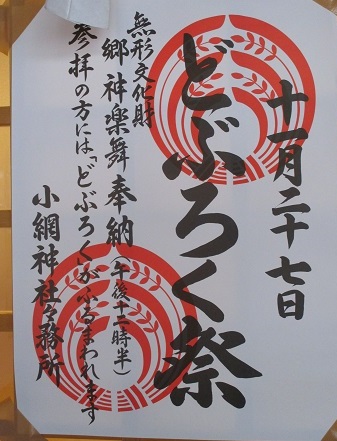 十一月二十七日
どぶろく祭
無形文化財
郷神楽舞奉納(午後十二時半)
参拝の方には「どぶろく」がふるまわれます
小網神社々務所